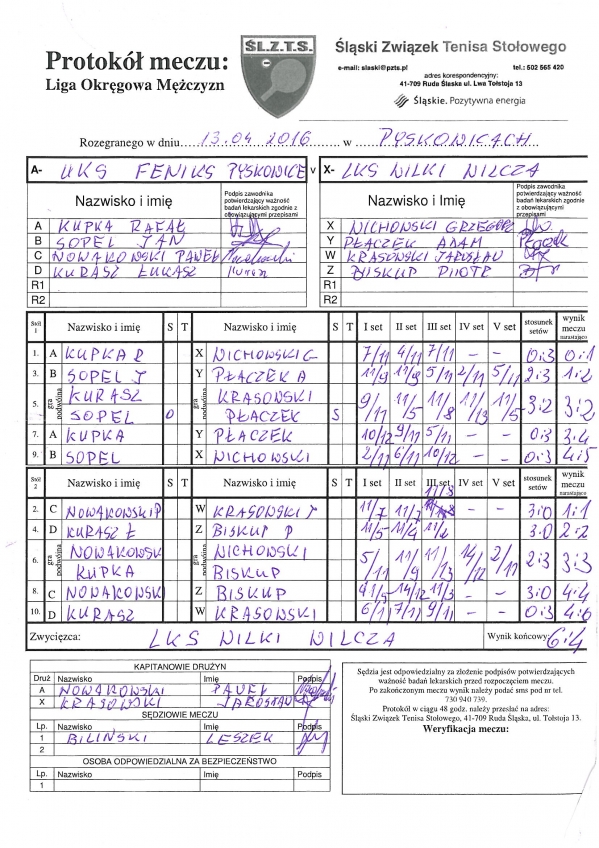 Protokół meczu:
Liga Okręgowa Mężczyzn
ŚL.Z.T.S.
Śląski Związek Tenisa Stołowego
e-mail: slaski@pzts.pl tel.: 502 565 420
adres korespondencyjny:
41-709 Ruda Śląska ul. Lwa Tołstoja 13
Śląskie. Pozytywna energia
Rozegranego w dniu 13.04 2016 w PYSKOWICACH
A- UKS FENIKS PYSKOWICE v X- LKS WILKI WILCZA
Nazwisko i imię Podpis zawodnika potwierdzający ważność badań lekarskich zgodnie z obowiązującymi przepisami Nazwisko i Imię Podpis zawodnika potwierdzający ważność badań lekarskich zgodnie z obowiązującymi przepisami
A KUPKA RAFAŁ X WICHOWSKI GRZEGORZ
B SOPEL JAN Y PŁACZEK ADAM Płaczek
C NOWAKOWSKI PAWEŁ W KRASOWSKI JAROSŁAW
D KURASZ ŁUKASZ Z BISKUP PIOTR
R1 R1
R2 R2
Stół 1 Nazwisko i imię S T Nazwisko i imię S T I set II set III set IV set V set stosunek setów wynik meczu narastająco
1. A KUPKA R X WICHOWSKI G 7/11 4/11 7/11 - - 0:3 0:1
3. B SOPEL J Y PŁACZEK A 11/9 11/9 5/11 2/11 5/11 2:3 1:2
5. gra podwójna KURASZ KRASOWSKI 9/11 11/5 11/8 11/13 11/5 3:2 3:2
SOPEL O PŁACZEK S
7. A KUPKA Y PŁACZEK 10/12 9/11 5/11 - - 0:3 3:4
9. B SOPEL X WICHOWSKI 2/11 6/11 10/12 - - 0:3 4:5
Stół 2 Nazwisko i imię S T Nazwisko i imię S T I set II set III set IV set V set stosunek setów wynik meczu narastająco
11/8
2. C NOWAKOWSKI P W KRASOWSKI J 11/7 11/7 - - 3:0 1:1
4. D KURASZ Ł Z BISKUP P 11/5 11/4 11/6 3:0 2:2
6. gra podwójna NOWAKOWSKI WICHOWSKI 5/11 11/9 11/13 14/12 2/11 2:3 3:3
KUPKA BISKUP
8. C NOWAKOWSKI Z BISKUP 11/5 14/12 11/3 - - 3:0 4:4
10. D KURASZ W KRASOWSKI 6/11 7/11 9/11 - - 0:3 4:6
Zwycięzca: LKS WILKI WILCZA Wynik końcowy: 6:4
KAPITANOWIE DRUŻYN
Druż Nazwisko Imię Podpis
A NOWAKOWSKI PAWEŁ
X KRASOWSKI JAROSŁAW
SĘDZIOWIE MECZU
Lp. Nazwisko Imię Podpis
1 BILIŃSKI LESZEK
2
OSOBA ODPOWIEDZIALNA ZA BEZPIECZEŃSTWO
Lp. Nazwisko Imię Podpis
Sędzia jest odpowiedzialny za złożenie podpisów potwierdzających
ważność badań lekarskich przed rozpoczęciem meczu.
Po zakończonym meczu wynik należy podać sms pod nr tel.
730 940 739.
Protokół w ciągu 48 godz. należy przesłać na adres:
Śląski Związek Tenisa Stołowego, 41-709 Ruda Śląska, ul. Tołstoja 13.
Weryfikacja meczu: